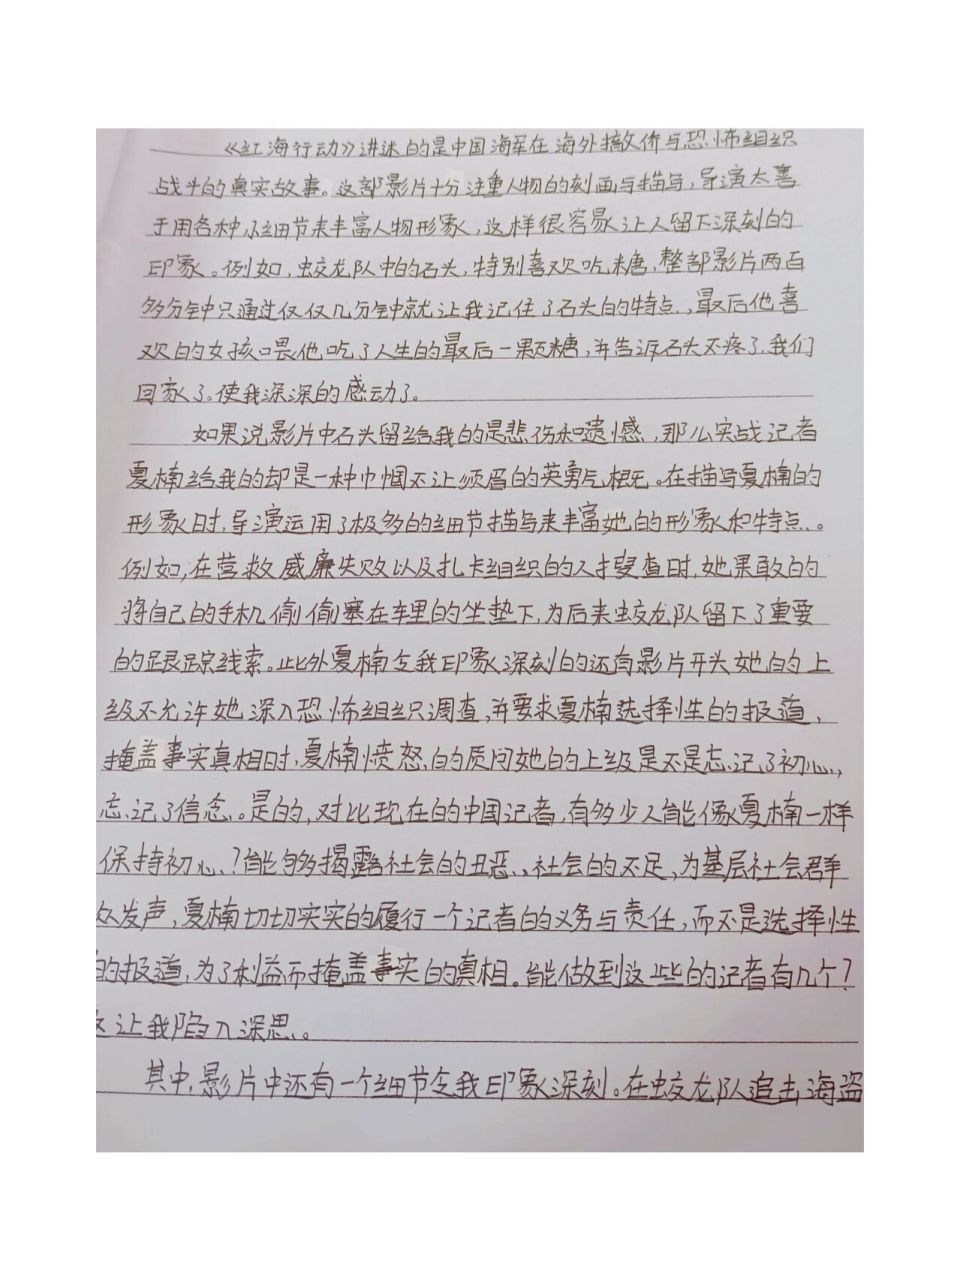 《红海行动》讲述的是中国海军在海外撤侨与恐怖组织
战斗的真实故事。这部影片十分注重人物的刻画与描写,导演太善
于用各种小细节来丰富人物形象,这样很容易让人留下深刻的
印象。例如,蛟龙队中的石头,特别喜欢吃糖,整部影片两百
多分钟只通过仅仅几分钟就让我记住了石头的特点,最后他喜
欢的女孩喂他吃了人生的最后一颗糖,并告诉石头不疼了,我们
回家了。使我深深的感动了。
如果说影片中石头留给我的是悲伤和遗憾,那么实战记者
夏楠给我的却是一种巾帼不让须眉的英勇气概。在描写夏楠的
形象时,导演运用了极多的细节描写来丰富她的形象和特点。
例如,在营救威廉失败以及扎卡组织的人搜查时,她果敢的
将自己的手机偷偷塞在车里的坐垫下,为后来蛟龙队留下了重要
的跟踪线索。此外夏楠令我印象深刻的还有影片开头她的上
级不允许她深入恐怖组织调查,并要求夏楠选择性的报道,
掩盖事实真相时,夏楠愤怒的质问她的上级是不是忘记了初心,
忘记了信念。是的,对比现在的中国记者,有多少人能像夏楠一样
保持初心?能够揭露社会的丑恶、社会的不足,为基层社会群
众发声,夏楠切切实实的履行一个记者的义务与责任,而不是选择性
的报道,为了利益而掩盖事实的真相。能做到这些的记者有几个?
这让我陷入深思。
其中,影片中还有一个细节令我印象深刻。在蛟龙队追击海盗